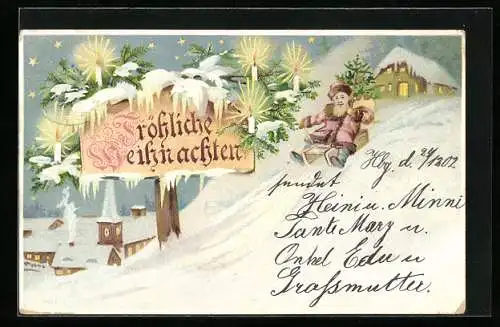 Fröhliche
Weihnachten
Hbg. d. 24/12 02
sendet
Heini u. Minni
Tante Mary u.
Onkel Edu u
Großmutter.